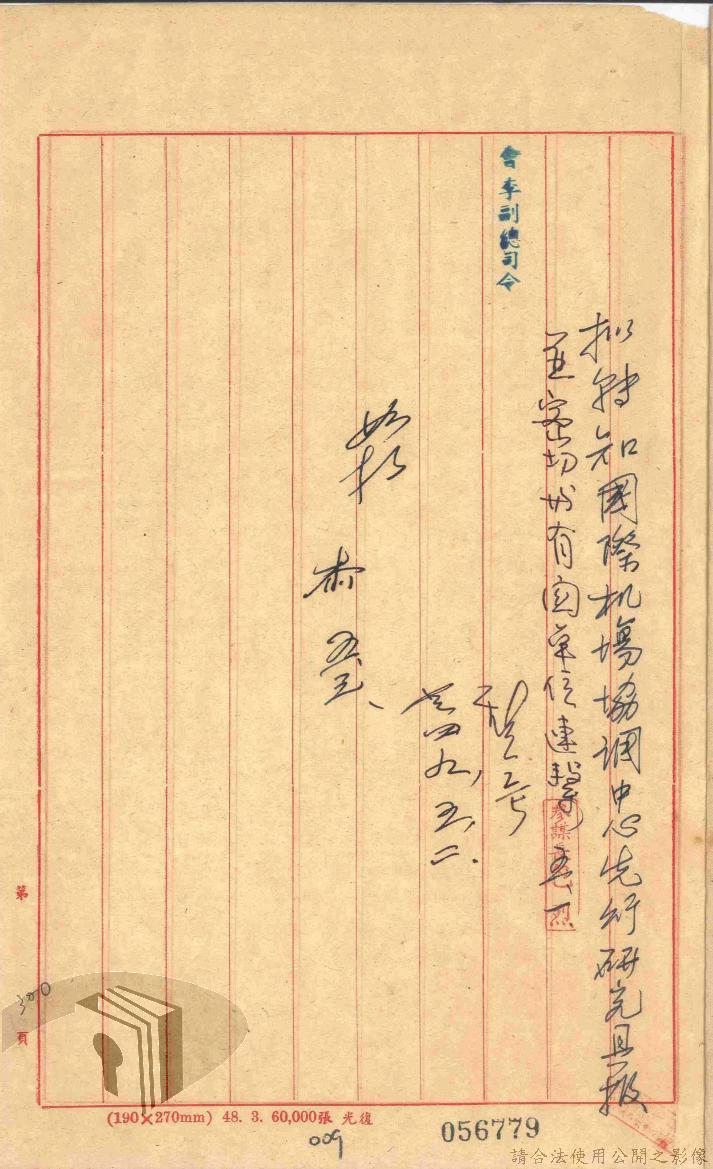 擬轉知國際机塲協調中心先行研究具報
並密切與有関單位連繫 五、一
參謀 烈
會李副總司令
四九、五、二、
如擬
五、
第 300 頁
(190×270mm) 48. 3. 60,000張 光復
009
056779
請合法使用公開之影像